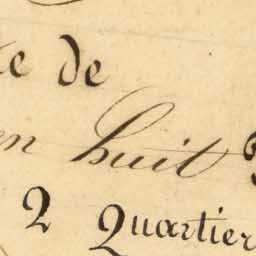 de
en huit
2 Quartier